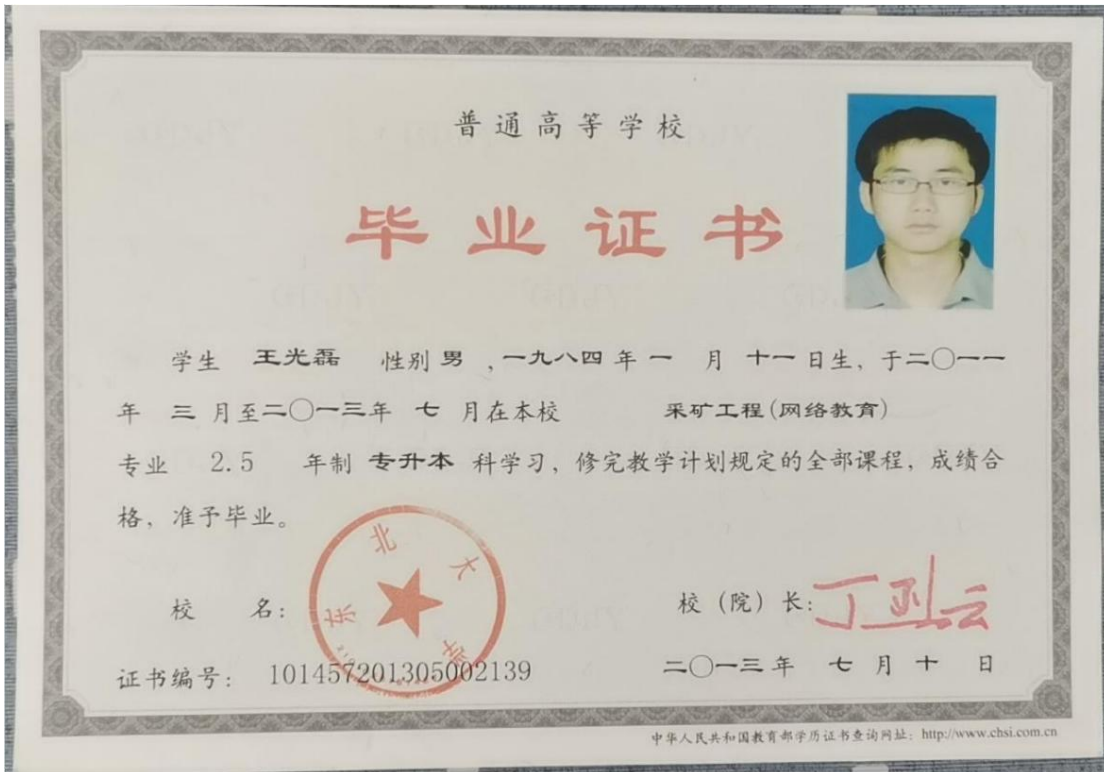 普通高等学校
毕业证书
学生 王光磊 性别 男 ,一九八四 年 一 月 十一 日生, 于二〇一一
年 三 月至二〇一三年 七 月在本校 采矿工程(网络教育)
专业 2.5 年制 专升本 科学习, 修完教学计划规定的全部课程, 成绩合
格, 准予毕业。
校 名:
东北大学
校 (院) 长: 丁烈云
证书编号: 101457201305002139
二〇一三 年 七 月 十 日
中华人民共和国教育部学历证书查询网址: http://www.chsi.com.cn